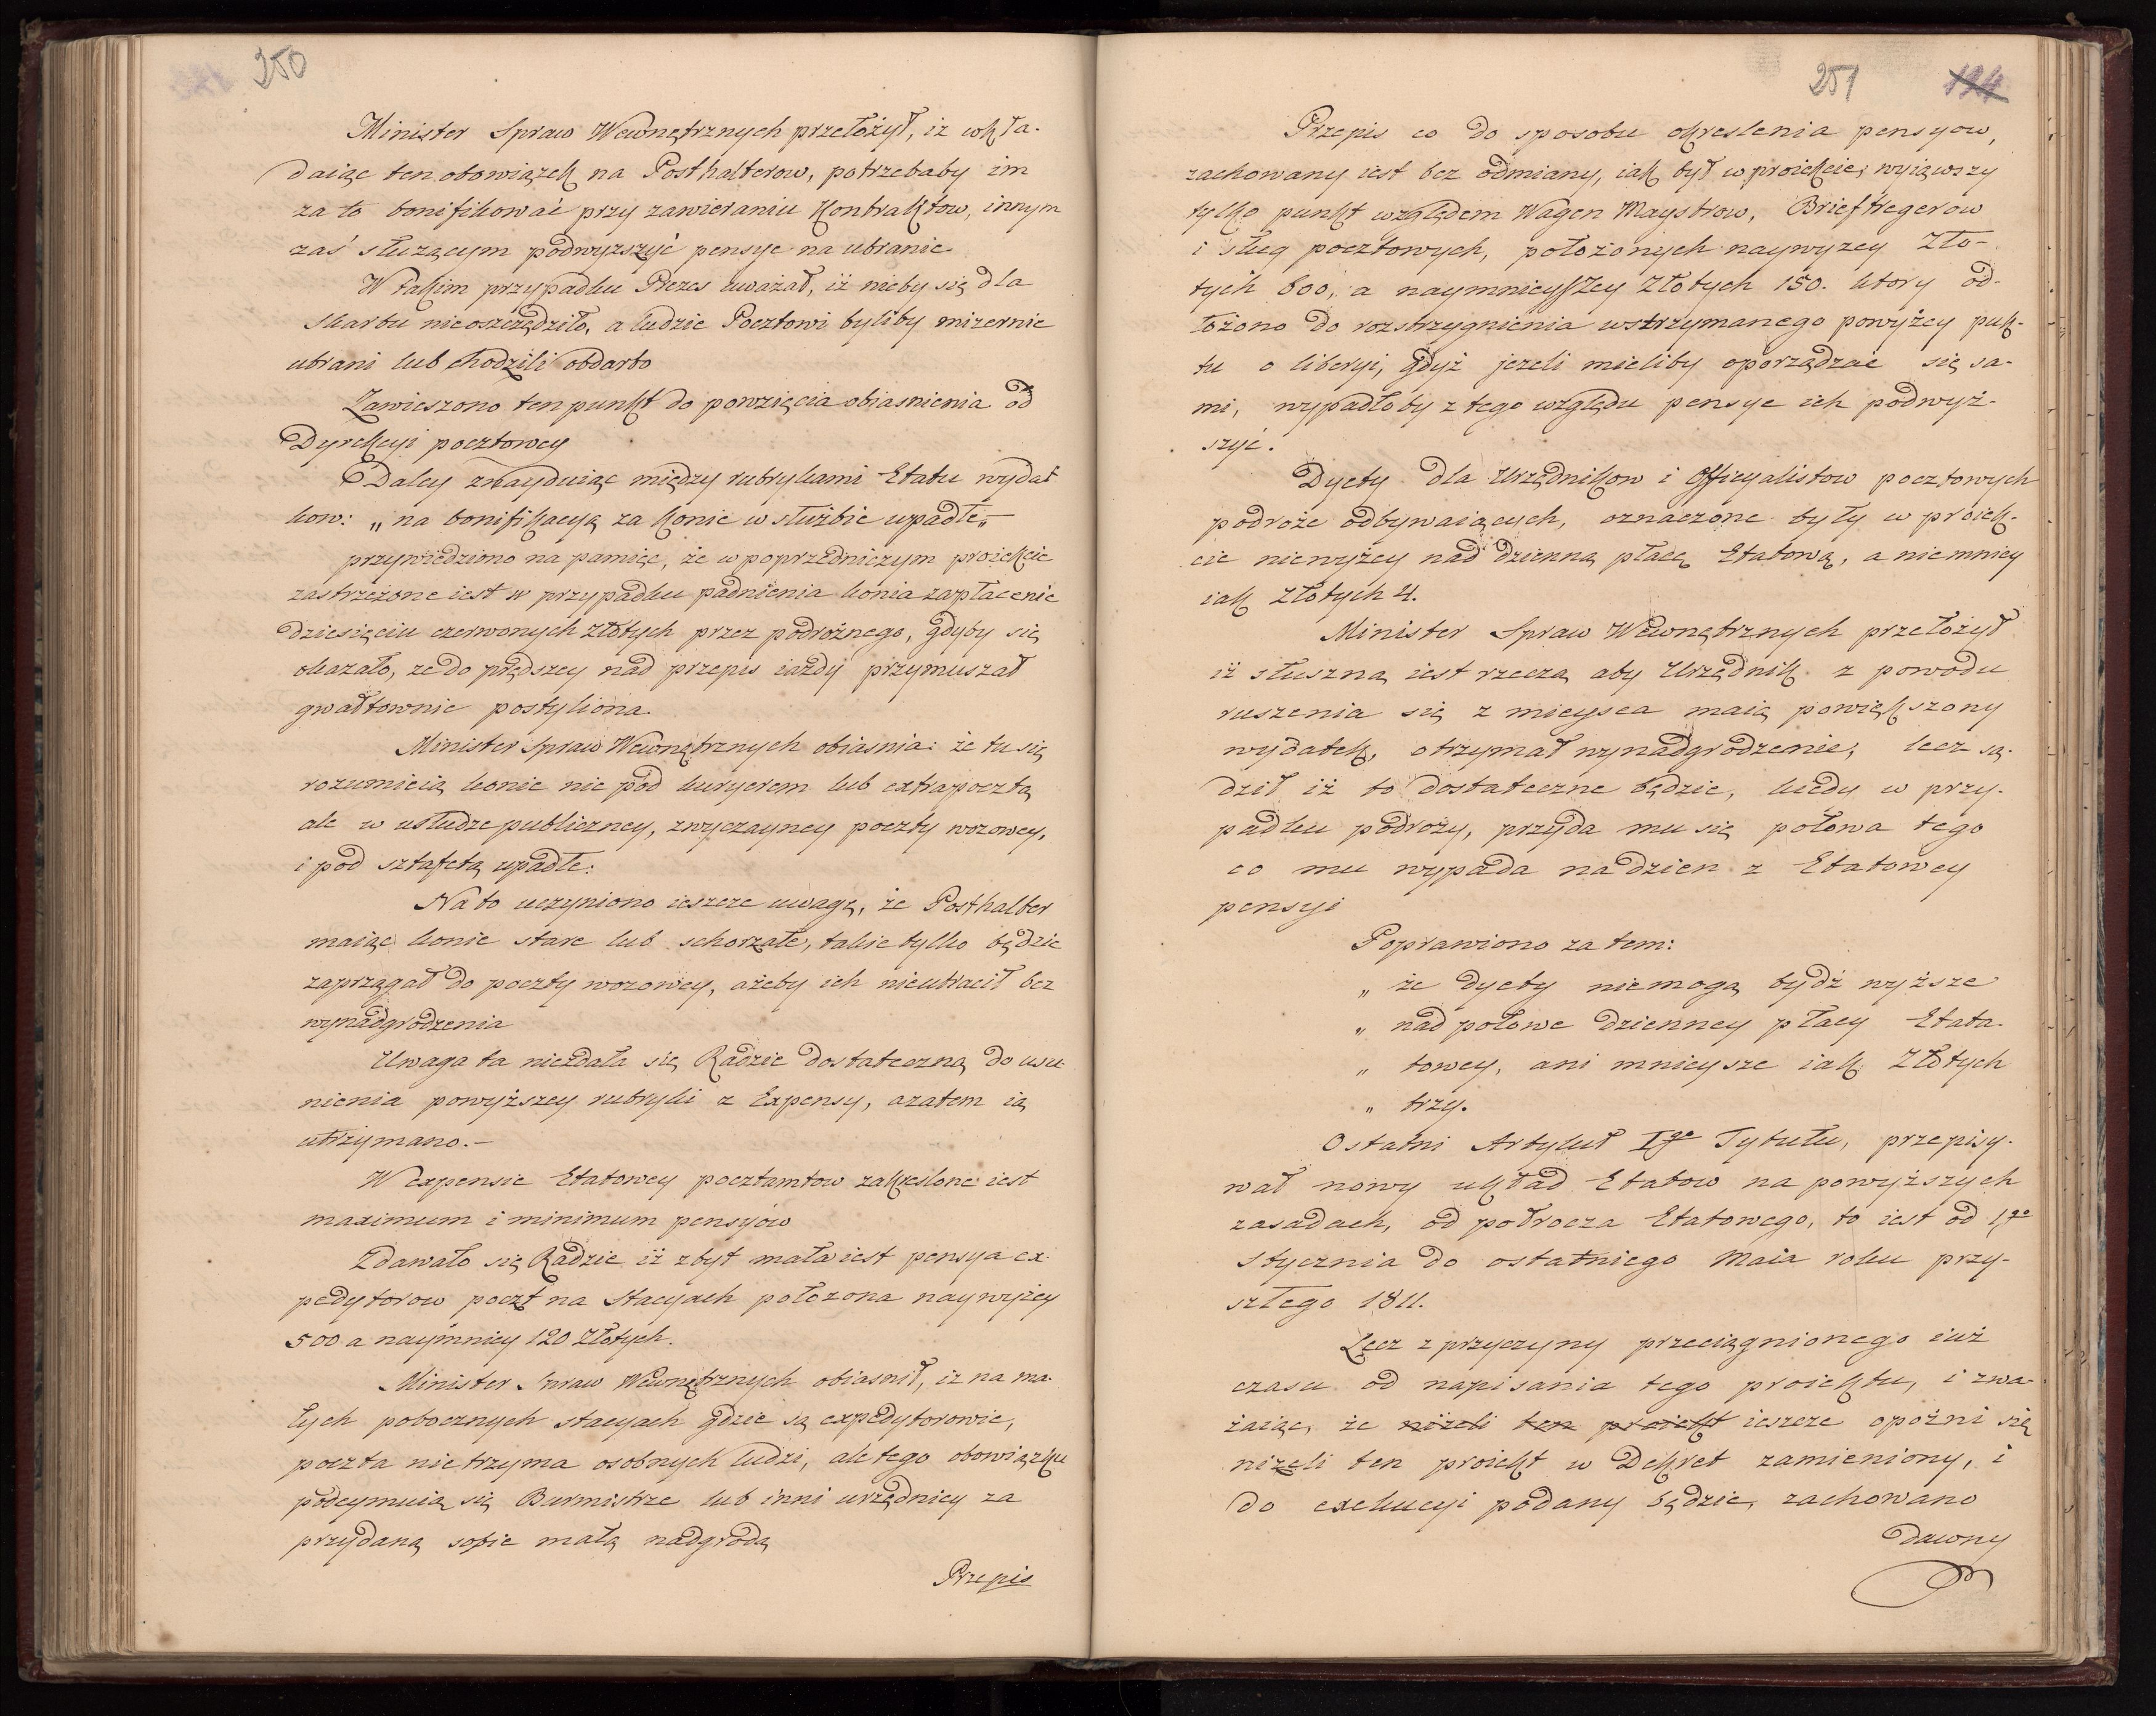 250
Minister Spraw Wewnętrznych przełożył, iz wkła-
daiąc ten obowiązek na Posthalterow, potrzebaby im
za to bonifikować przy zawieraniu kontraktow, innym
zaś służącym podwyzszyć pensye na ubranie
W takim przypadku Prezes uważał, iż nieby się dla
skarbu nieoszczędziło, a ludzie Pocztowi byliby mizernie
ubrani lub chodzili obdarto
Zawieszono ten punkt do powzięcia obiasnienia od
Dyrekcyi pocztowey
Daley znayduiąc między rubrykami Etatu wydat
kow: „na bonifikacyą za konie w służbie upadłe„—
przywiedziono na pamięc, że w poprzedniczym proiekcie
zastrzeżone iest w przypadku padnienia konia zapłacenie
dziesięciu czerwonych złotych przez podrożnego, gdyby się
okazało, ze do prędszey nad przepis iazdy przymuszał
gwałtownie postyliona
Minister Spraw Wewnętrznych obiasnia: że tu się
rozumieią konie nie pod kuryerem lub extrapocztą
ale w usłudze publiczney, zwyczayney poczty wozowey,
i pod sztafetą upadłe:
Na to uczyniono ieszcze uwagę, że Posthalter
maiąc konie stare lub schorzałe, takie tylko będzie
zaprzągał do poczty wozowey, ażeby ich nieutracił bez
wynadgrodzenia
Uwaga ta niezdała się Radzie dostateczną do usu-
nienia powyższey rubryki z Expensy, azatem ią
utrzymano.—
W expensie Etatowey pocztamtow zakreslone iest
maximum i minimum pensyów
Zdawało się Radzie iż zbyt mała iest pensya ex-
pedytorow poczt na Stacyach położona naywyżey
500 a naymniey 120 Złotych.
Minister Spraw Wewnętrznych obiasnił, iz na ma-
łych pobocznych stacyach gdzie są expedytorowie,
poczta nie trzyma osobnych ludzi, ale tego obowiązku
podeymuią się Burmistrze lub inni urzędnicy za
przydaną sobie małą nadgrodą
Przepis
251 124
Przepis co do sposobu okreslenia pensyow,
zachowany iest bez odmiany, iak był w proiekcie; wyiąwszy
tylko punkt względem Wagen Maystrow, Brieftregerow
i sług pocztowych, położonych naywyzey Zło-
tych 600, a naymnieyszey Złotych 150. ktory od-
łożono do rozstrzygnienia wstrzymanego powyżey puk-
tu o liberyi, gdyż jezeli mieliby oporządzac się sa-
mi, wypadłoby z tego względu pensye ich podwyż-
szyć.
Dyety dla Urzędnikow i Officyalistow pocztowych
podroże odbywaiących, oznaczone były w proiek-
cie niewyżey nad dzienną płacę Etatową, a nie mniey
iak Złotych 4.
Minister Spraw Wewnętrznych przełożył
iż słuszną iest rzeczą aby Urzędnik z powodu
ruszenia się z mieysca maią powiększony
wydatek, otrzymał wynadgrodzenie, lecz są-
dził iż to dostateczne będzie, kiedy w przy-
padku podroży, przyda mu się połowa tego
co mu wypada na dzien z Etatowey
pensyi
Poprawiono za tem:
„ że dyety niemogą bydź wyższe
„ nad połowe dzienney płacy Etata-
„ towey, ani mnieysze iak Złotych
„ trzy.
Ostatni Artykuł Igo Tytułu, przepisy-
wał nowy układ Etatow na powyższych
zasadach, od połrocza Etatowego, to iest od 1go
Stycznia do ostatniego Maia roku przy-
szłego 1811.
Lecz z przyczyny przeciągnionego iuż
czasu od napisania tego proiektu, i zwa-
żaiąc, że niżeli ten proiekt ieszcze opożni się
niżeli ten proiekt w Dekret zamieniony, i
do exekucyi podany będzie, zachowano
dawny